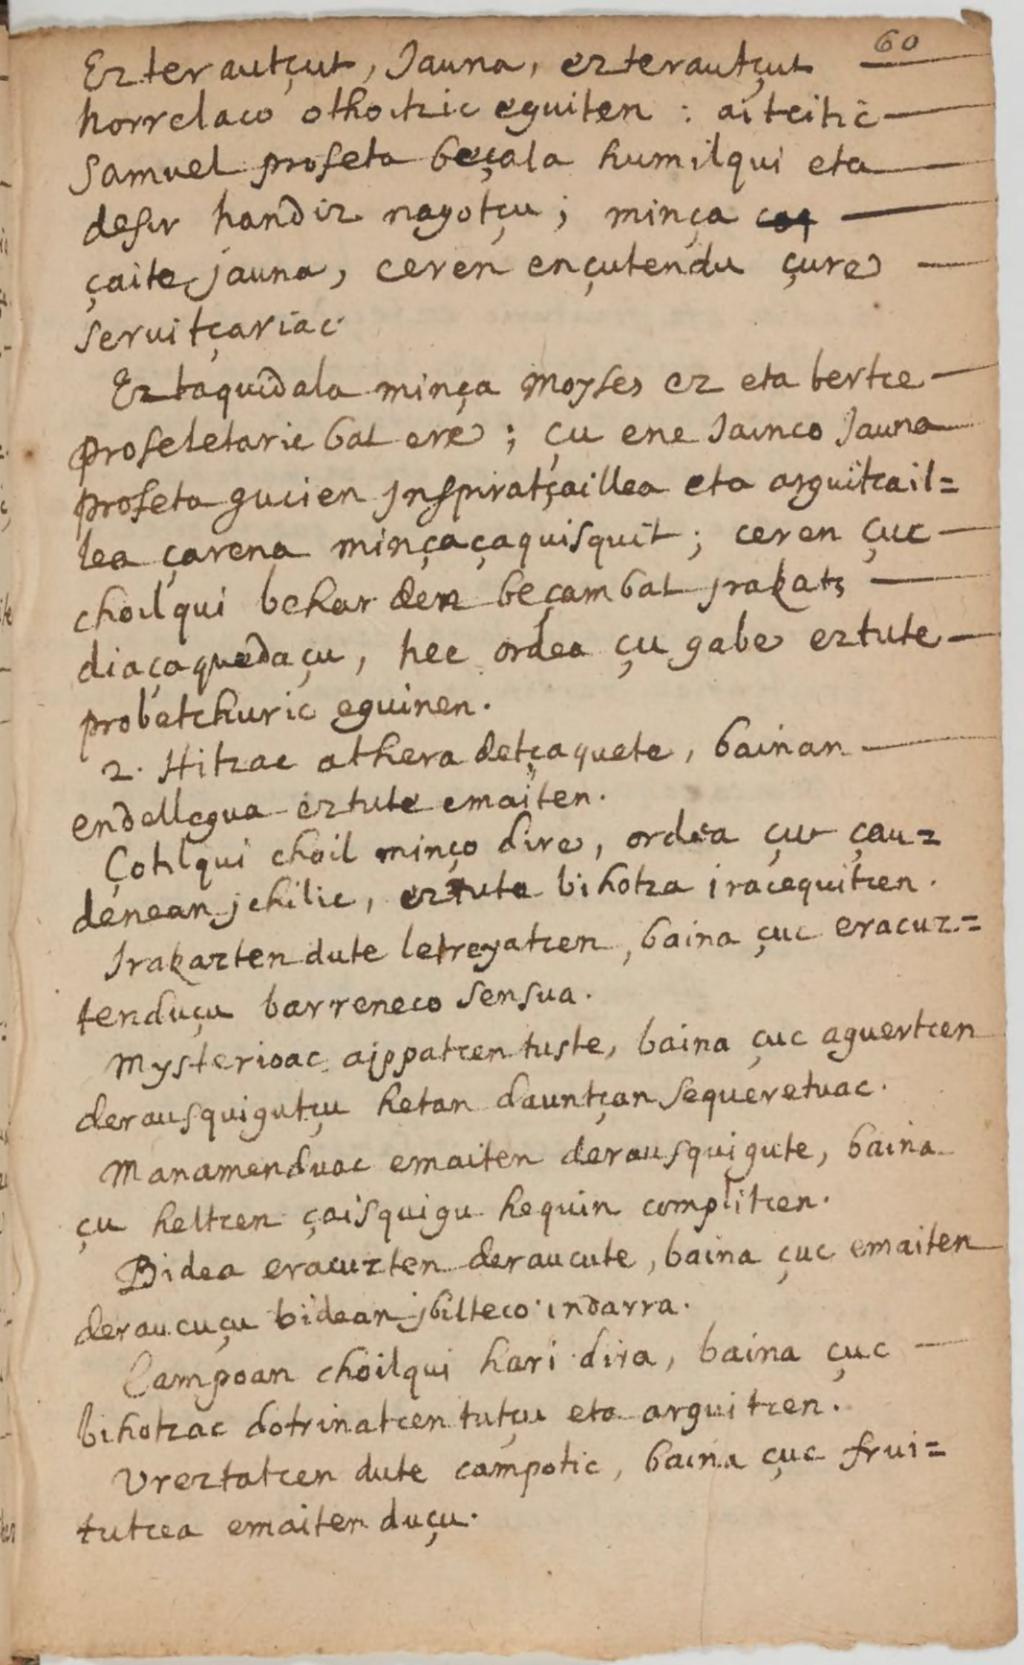 60
Ez terautçut, Jauna, ez terautçut
horrelaco othoitzic eguiten : aitcitic
Samuel profeta beçala humilqui eta
desir handiz nagotçu ; minça
çaite jauna, ceren ençutendu çure
seruitçariac.
Ez baquidala minça Moyses ez eta bertce
profeletaric bat ere ; çu ene Jainco Jauna
profeta gucien jnspiratçaillea eta arguitcail=
lea çarena minçaçaquisquit ; ceren çuc
choilqui behar den beçambat jrakats
diaçaquedaçu, hec ordea çu gabe eztute
probetchuric eguinen.
2. Hitzac athera detçaquete, bainan
endellegua eztute emaiten.
Çohilqui choil minço dire, ordea çu çau=
denean jchilic, eztute bihotza iracequitcen.
Jrakazten dute letreyatcen, baina çuc eracuz=
tenduçu barreneco sensua.
Mysterioac aippatcen tuste, baina çuc aguertcen
derausquigutçu hetan dauntçan sequeretuac.
Manamenduac emaiten derausquigute, baina
çu heltcen çaisquigu hequin complitcen.
Bidea eracuzten deraucute, baina çuc emaiten
deraucuçu bidean jbilteco indarra.
Campoan choilqui hari dira, baina çuc
bihotzac dotrinatcen tutçu eta arguitcen.
Vreztatcen dute campotic, baina çuc frui=
tutcea emaiten duçu.